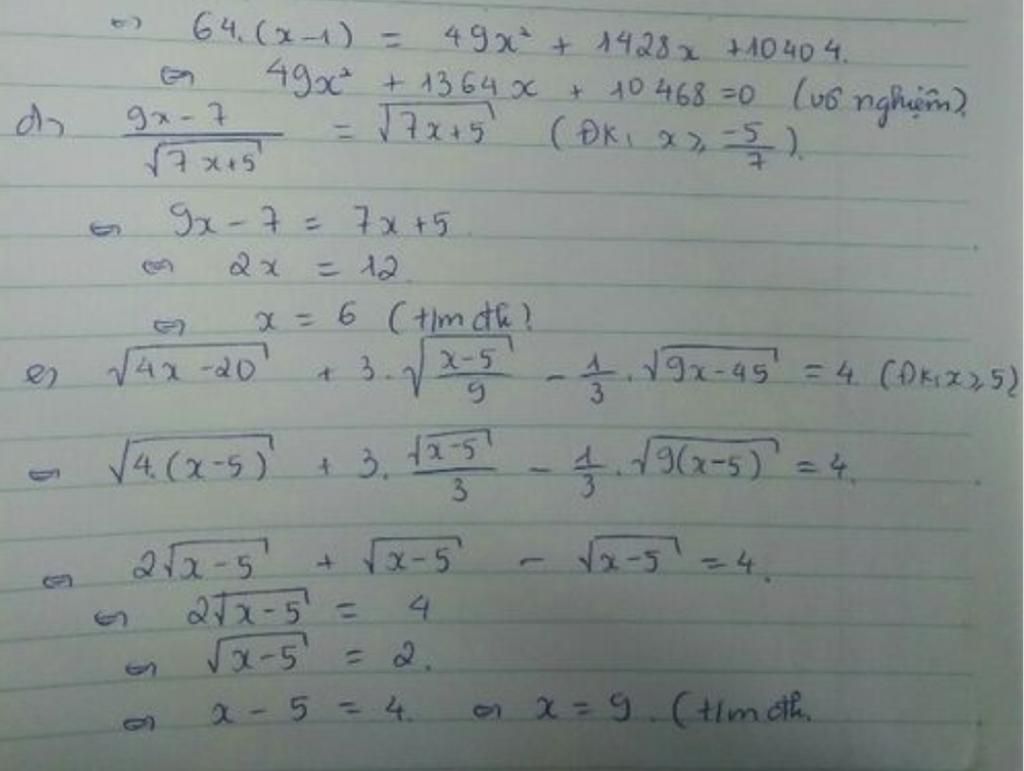 ⇔ 64.(x-1) = 49x² + 1428x + 10404.
⇔ 49x² + 1364x + 10468 = 0 (vô nghiệm)
d) \frac{9x-7}{\sqrt{7x+5}} = \sqrt{7x+5} (ĐK: x ≥ \frac{-5}{7}).
⇔ 9x - 7 = 7x + 5
⇔ 2x = 12.
⇔ x = 6 (t/m đk)
e) \sqrt{4x-20} + 3.\sqrt{\frac{x-5}{9}} - \frac{1}{3}.\sqrt{9x-45} = 4 (ĐK: x ≥ 5)
⇔ \sqrt{4.(x-5)} + 3.\frac{\sqrt{x-5}}{3} - \frac{1}{3}.\sqrt{9(x-5)} = 4.
⇔ 2\sqrt{x-5} + \sqrt{x-5} - \sqrt{x-5} = 4.
⇔ 2\sqrt{x-5} = 4
⇔ \sqrt{x-5} = 2.
⇔ x - 5 = 4. ⇔ x = 9. (t/m đk.